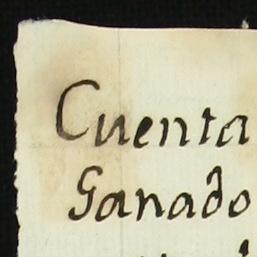 Cuenta
Ganado